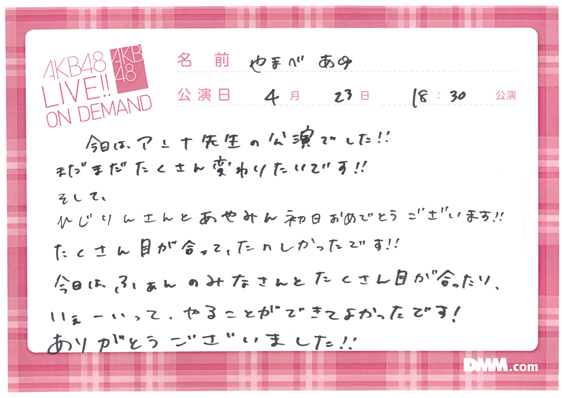 AKB48
LIVE!!
ON DEMAND
AKB
48
名前 やまべ あゆ
公演日 4月 23日 18:30 公演
今日は、アンナ先生の公演でした!!
まだまだたくさん変わりたいです!!
そして、
ひじりんさんとあやみん初日おめでとうございます!!
たくさん目が合って、たのしかったです!!
今日は、ふぁんのみなさんとたくさん目が合ったり、
いぇーいって、やることができてよかったです!
ありがとうございました!!
DMM.com